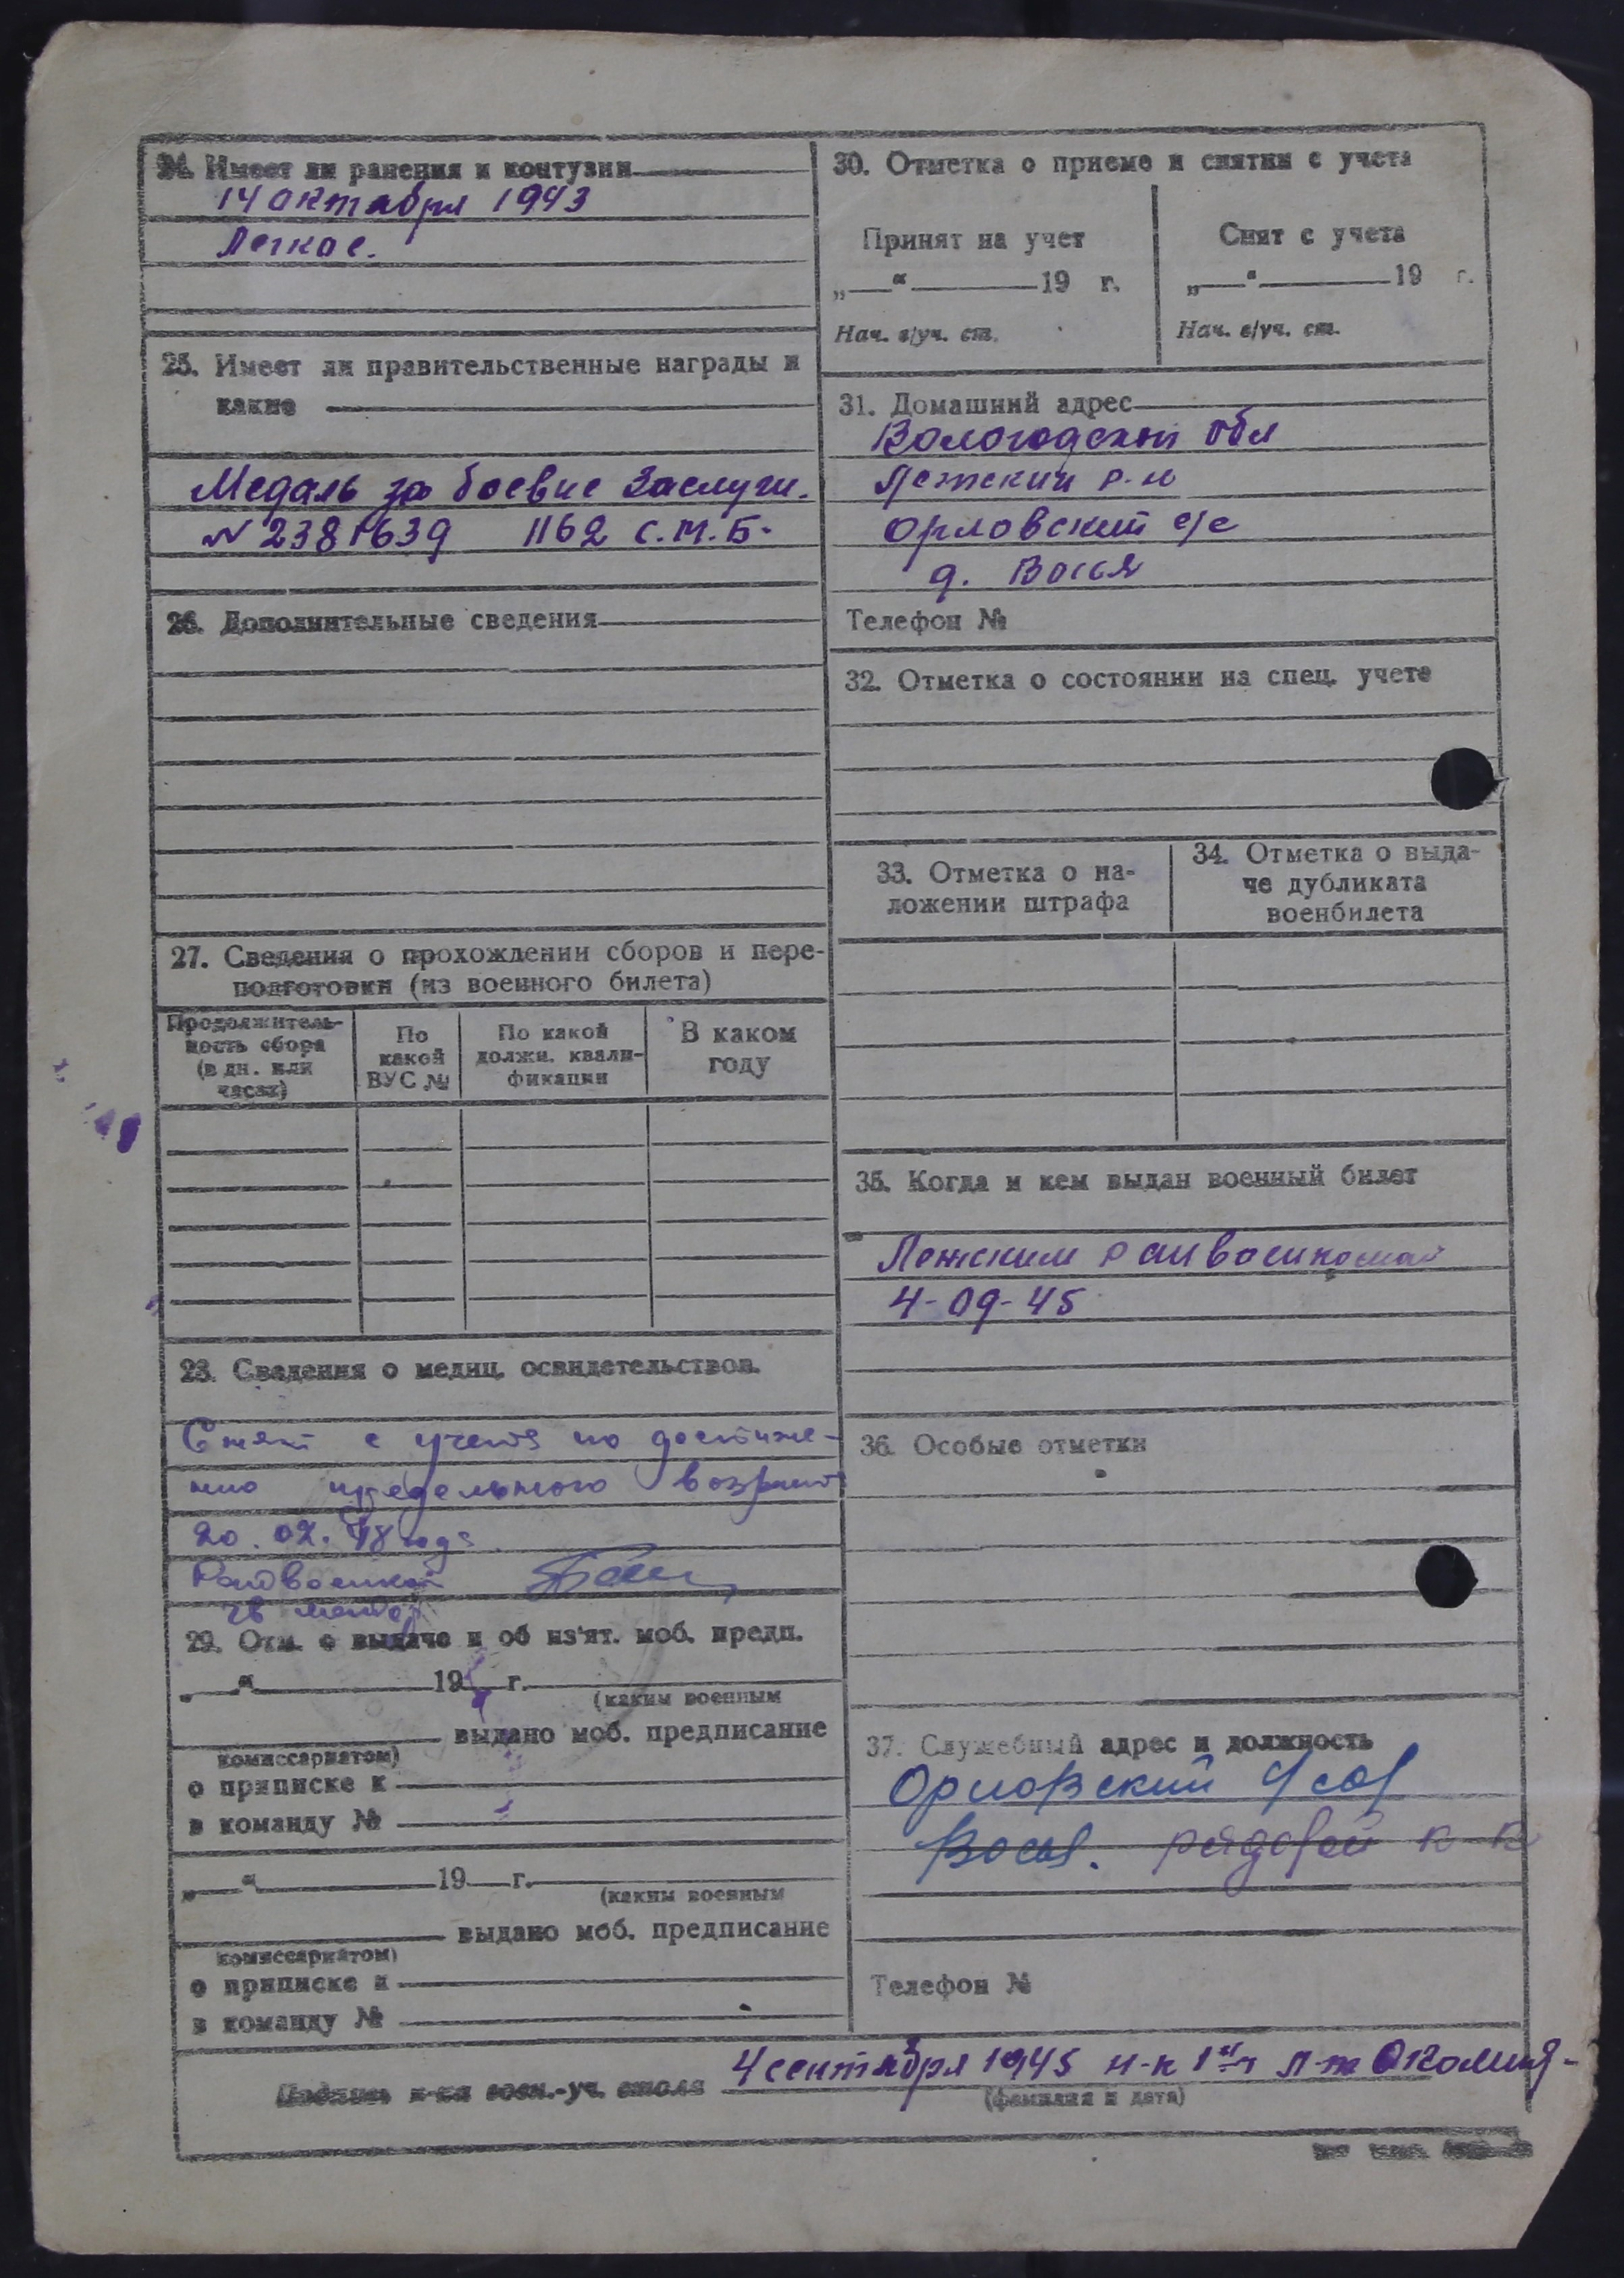 24. Имеет ли ранения и контузии
14 октября 1943
Легкое.
25. Имеет ли правительственные награды и
какие
Медаль за боевые заслуги.
№ 2381639 1162 с.м.б.
26. Дополнительные сведения
27. Сведения о прохождении сборов и пере-
подготовки (из военного билета)
Продолжитель-
ность сбора
(в дн. или
часах)
По
какой
ВУС №
По какой
должн. квали-
фикации
В каком
году
28. Сведения о медиц. освидетельствов.
Снят с учета по достиже-
нию предельного возраста
20.02. года
Райвоенком
29. Отм. о выдаче и об из'ят. моб. предп.
„ “ 195 г.
(каким военным
выдано моб. предписание
комиссариатом)
о приписке к
в команду №
„ “ 19 г.
(каким военным
выдано моб. предписание
комиссариатом)
о приписке к
в команду №
30. Отметка о приеме и снятии с учета
Принят на учет
„ “ 19 г.
Нач. в/уч. ст.
Снят с учета
„ “ 19 г.
Нач. в/уч. ст.
31. Домашний адрес
Вологодской обл
Лежский р-н
Орловский с/с
д. Восья
Телефон №
32. Отметка о состоянии на спец. учете
33. Отметка о на-
ложении штрафа
34. Отметка о выда-
че дубликата
военбилета
35. Когда и кем выдан военный билет
Лежским райвоенкомат
4-09-45
36. Особые отметки
37. Служебный адрес и должность
Орловский с/сов
Восья. рядовой к-к
Телефон №
Подпись н-ка воен.-уч. стола
4 сентября 1945 н-к 1 ч л-т
(фамилия и дата)